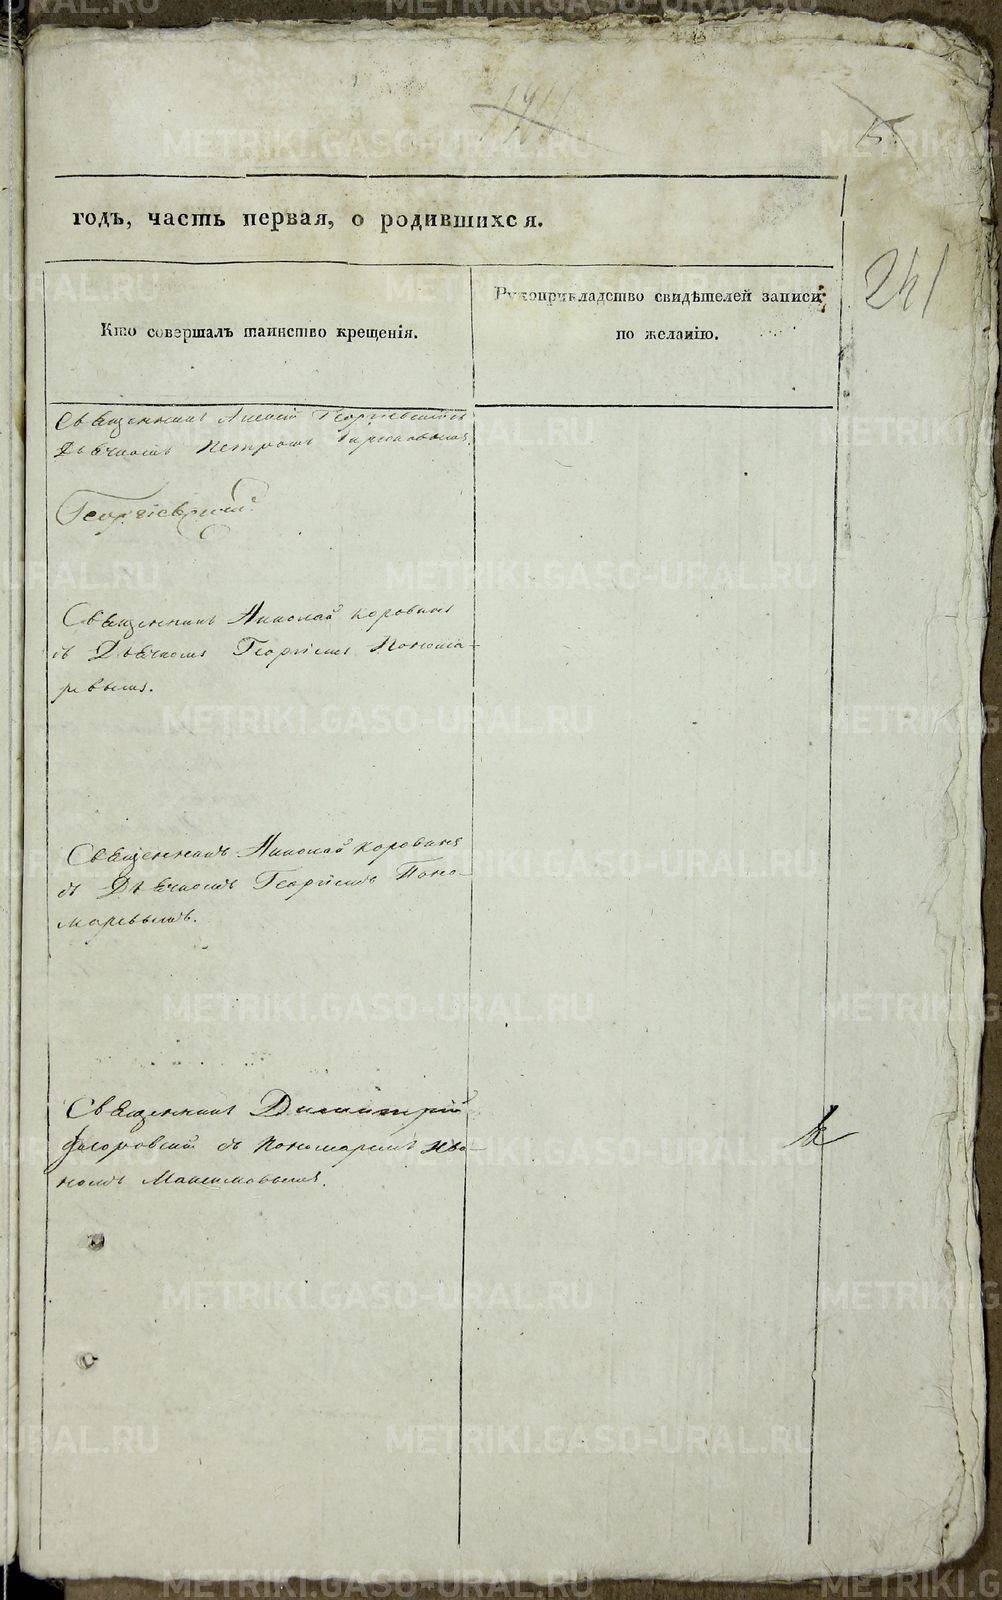 241
годъ, часть первая, о родившихся.
Кто совершалъ таинство крещенія.
Рукоприкладство свидѣтелей записи
по желанію.
Священникъ Алексій Георгіевскій съ
Дьячкомъ Петромъ
Георгіевскій
Священникъ Николай Коровинъ
съ Дьячкомъ Георгіемъ Понома-
ревымъ.
Священникъ Николай Коровинъ
съ Дьячкомъ Георгіемъ Поно-
маревымъ.
Священникъ Димитрій
съ Пономаремъ Ива-
номъ Максимовымъ.
METRIKI.GASO-URAL.RU